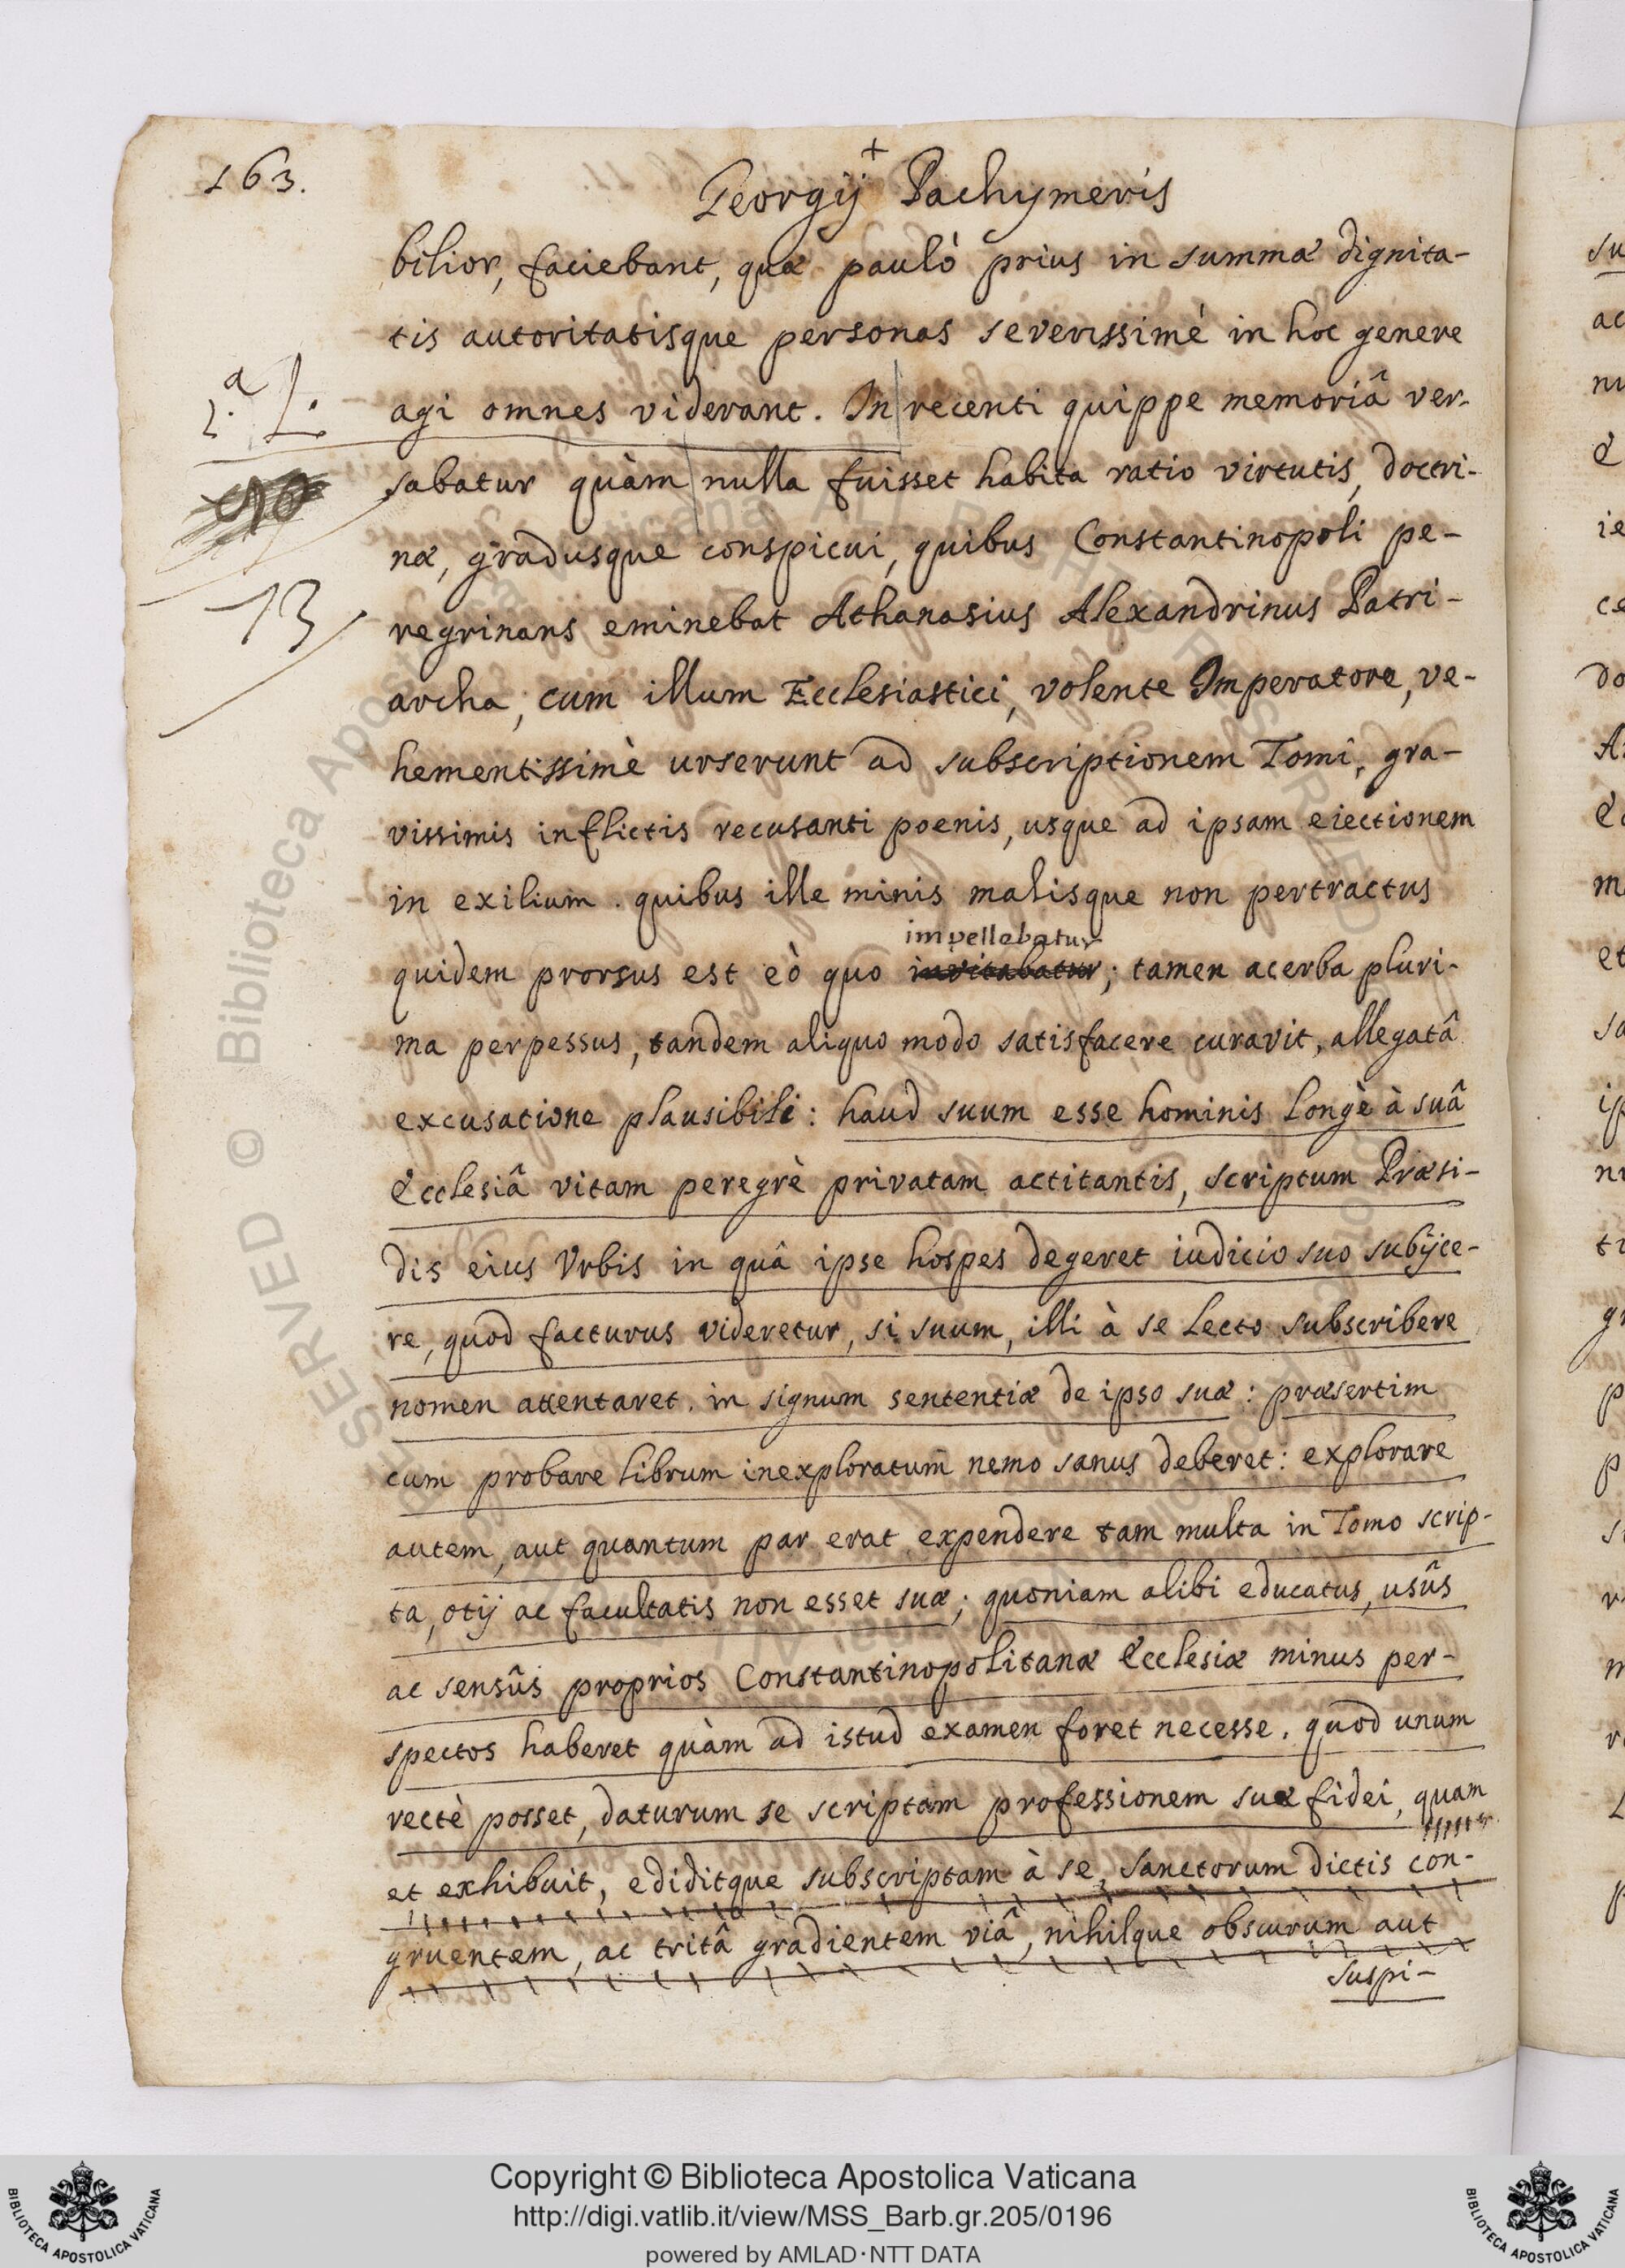 163.
+
Georgij Pachymeris
bilior, faciebant, quæ paulò prius in summæ dignita-
tis autoritatisque personas severissimè in hoc genere
agi omnes viderant. In recenti quippe memoriâ ver-
sabatur quàm nulla fuisset habita ratio virtutis, doctri-
næ, gradusque conspicui, quibus Constantinopoli pe-
regrinans eminebat Athanasius Alexandrinus Patri-
archa, cum illum Ecclesiastici, volente Imperatore, ve-
hementissimè urserunt ad subscriptionem Tomi, gra-
vissimis inflictis recusanti poenis, usque ad ipsam eiectionem
in exilium. quibus ille minis malisque non pertractus
impellebatur
quidem prorsus est eò quo invitabatur; tamen acerba pluri-
ma perpessus, tandem aliquo modo satisfacere curavit, allegatâ
excusatione plausibili: haud suum esse hominis longè à suâ
Ecclesiâ vitam peregrè privatam actitantis, scriptum Præsi-
dis eius Urbis in quâ ipse hospes degeret iudicio suo subijce-
re, quod facturus videretur, si suum, illi à se lecto subscribere
nomen attentaret. in signum sententiæ de ipso suæ: præsertim
cum probare librum inexploratum nemo sanus deberet: explorare
autem, aut quantum par erat expendere tam multa in Tomo scrip-
ta, otij ac facultatis non esset suæ; quoniam alibi educatus, usûs
ac sensûs proprios Constantinopolitanæ Ecclesiæ minus per-
spectos haberet quàm ad istud examen foret necesse. quod unum
rectè posset, daturum se scriptam professionem suæ fidei, quam
et exhibuit, ediditque subscriptam à se, Sanctorum dictis con-
gruentem, ac tritâ gradientem viâ, nihilque obscurum aut
suspi-
1.ª L.
13
© Biblioteca Apostolica Vaticana
Copyright © Biblioteca Apostolica Vaticana
http://digi.vatlib.it/view/MSS_Barb.gr.205/0196
powered by AMLAD·NTT DATA
BIBLIOTECA APOSTOLICA VATICANA
BIBLIOTECA APOSTOLICA VATICANA